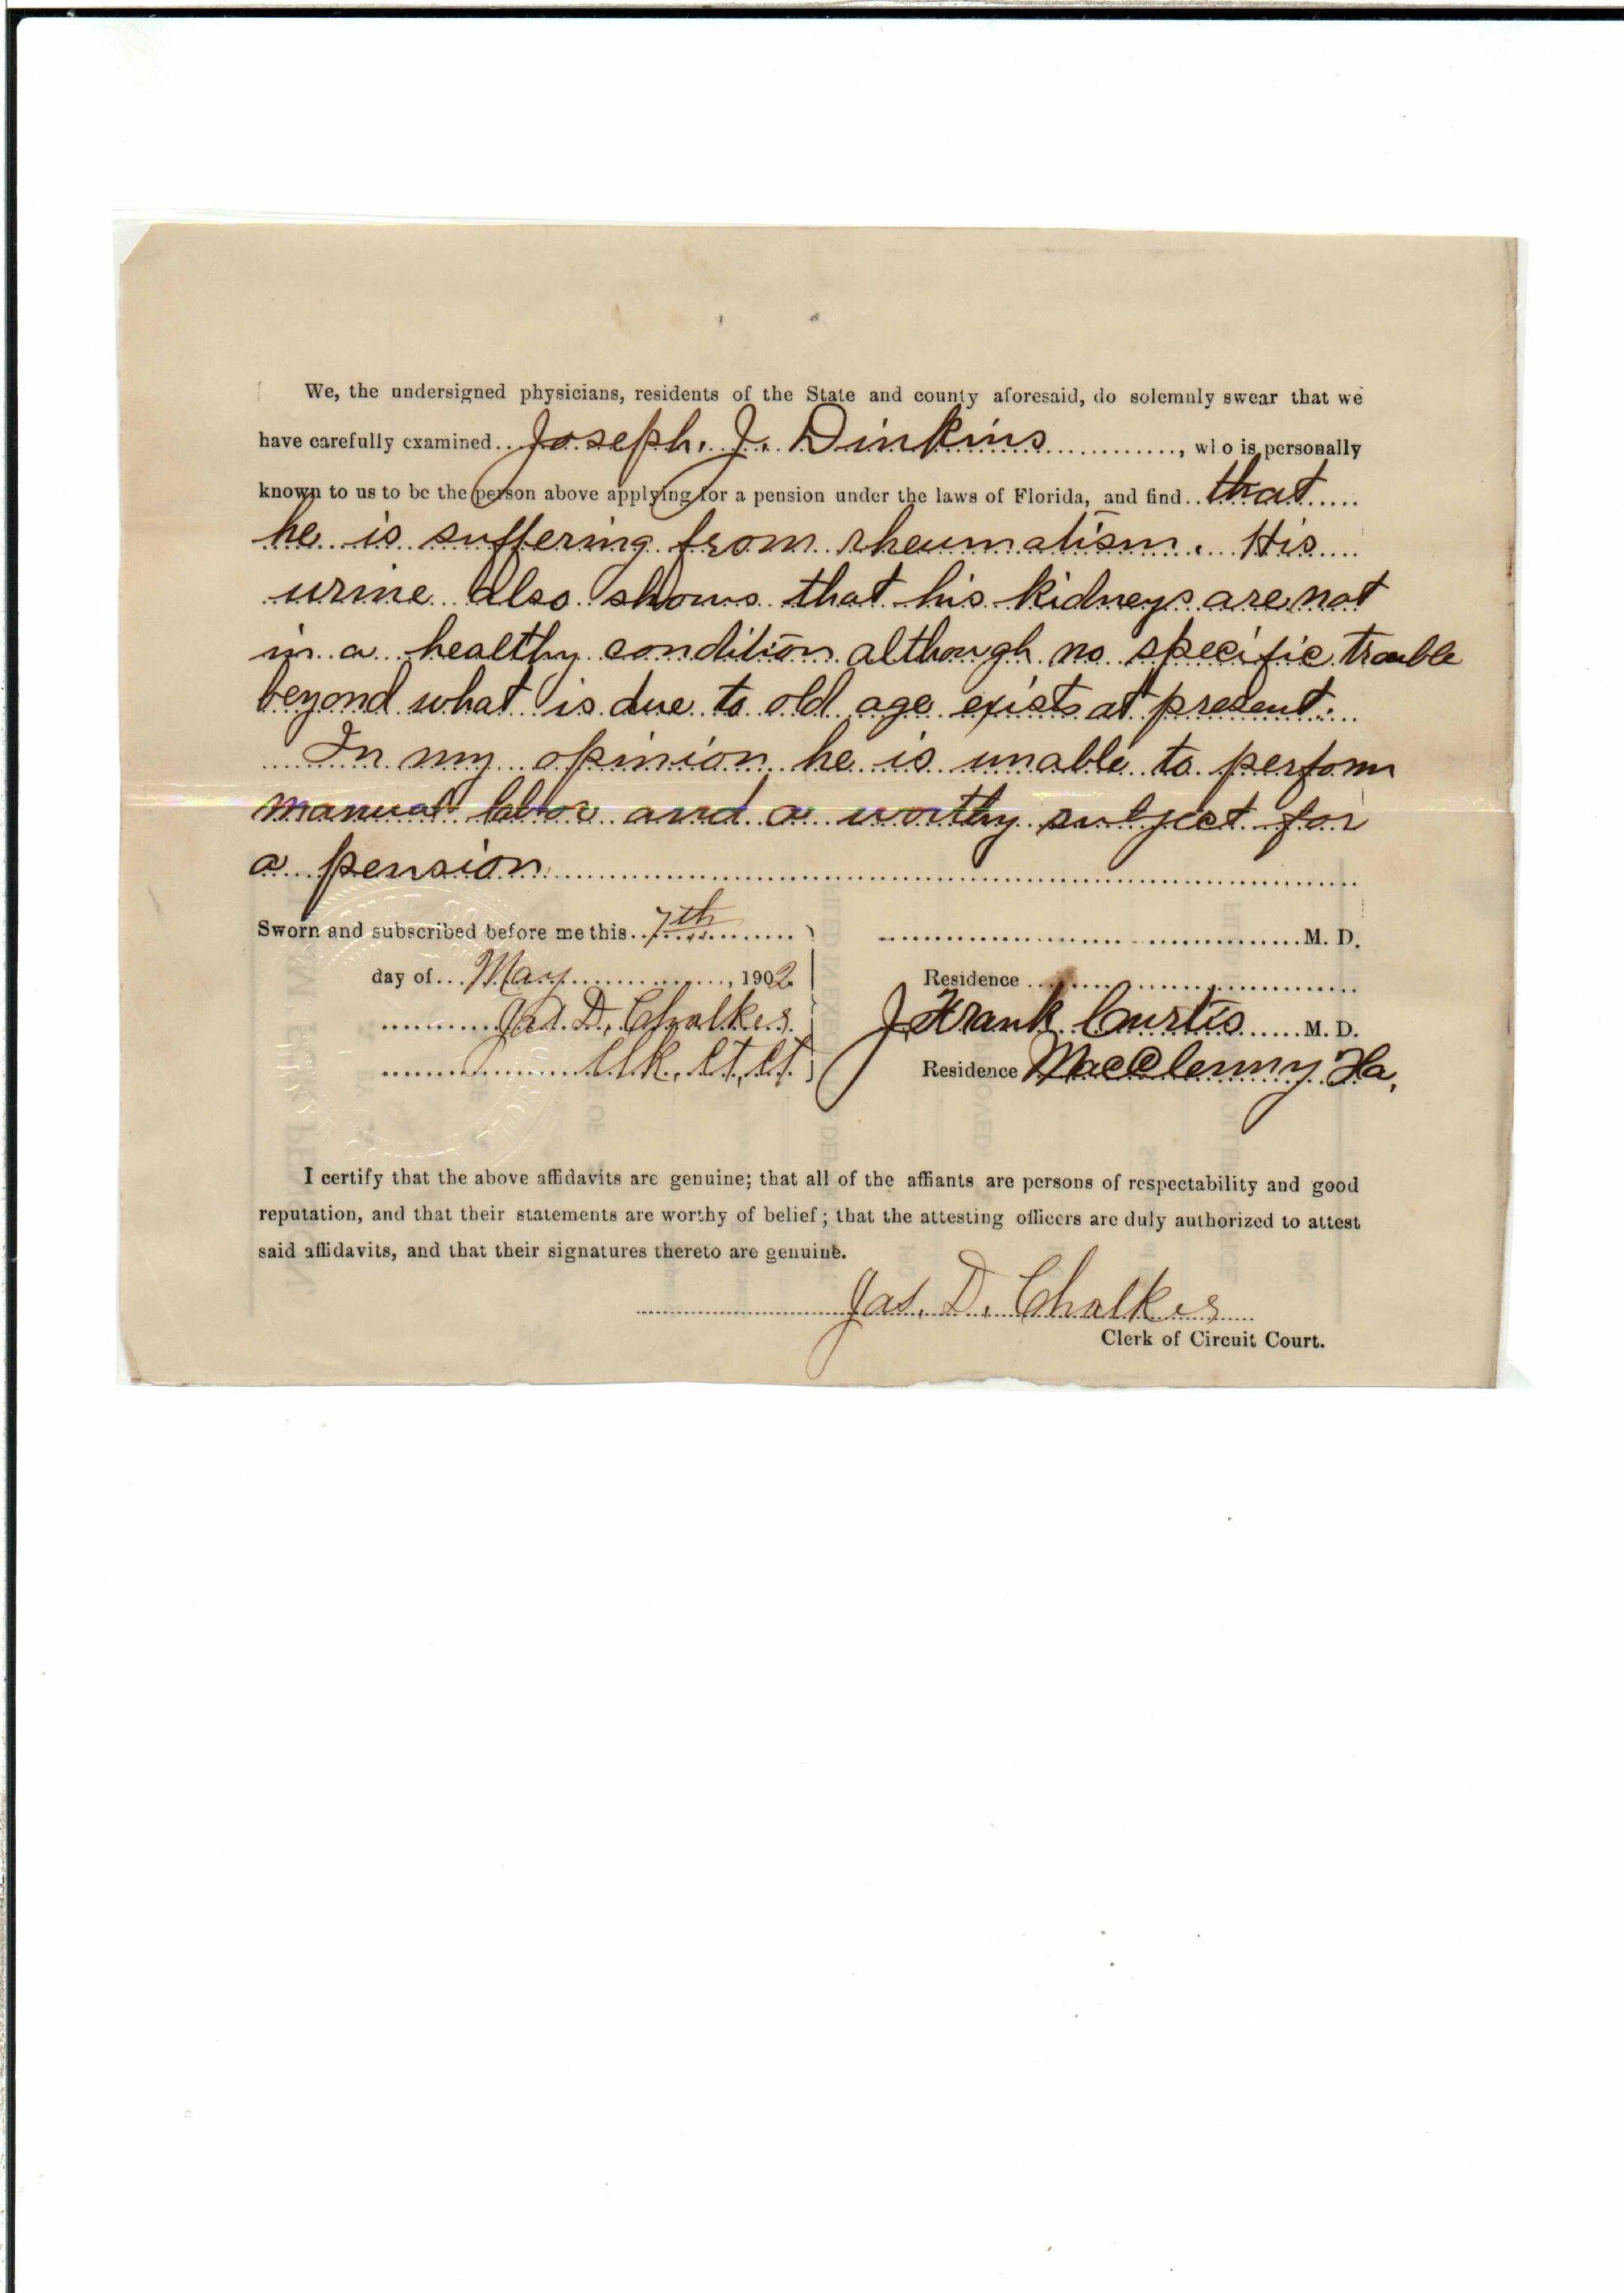 We, the undersigned physicians, residents of the State and county aforesaid, do solemnly swear that we
have carefully examined Joseph. J. Dinkins, who is personally
known to us to be the person above applying for a pension under the laws of Florida, and find that
he is suffering from rheumatism. His
urine also shows that his kidneys are not
in a healthy condition although no specific trouble
beyond what is due to old age exists at present.
In my opinion he is unable to perform
manual labor and a worthy subject for
a pension
Sworn and subscribed before me this 7th
day of May, 1902
Jas. D. Chalker
Clk. Ct. Ct.
M. D.
Residence
J. Frank Curtis M. D.
Residence MacClenny Fla.
I certify that the above affidavits are genuine; that all of the affiants are persons of respectability and good
reputation, and that their statements are worthy of belief; that the attesting officers are duly authorized to attest
said affidavits, and that their signatures thereto are genuine.
Jas. D. Chalker
Clerk of Circuit Court.